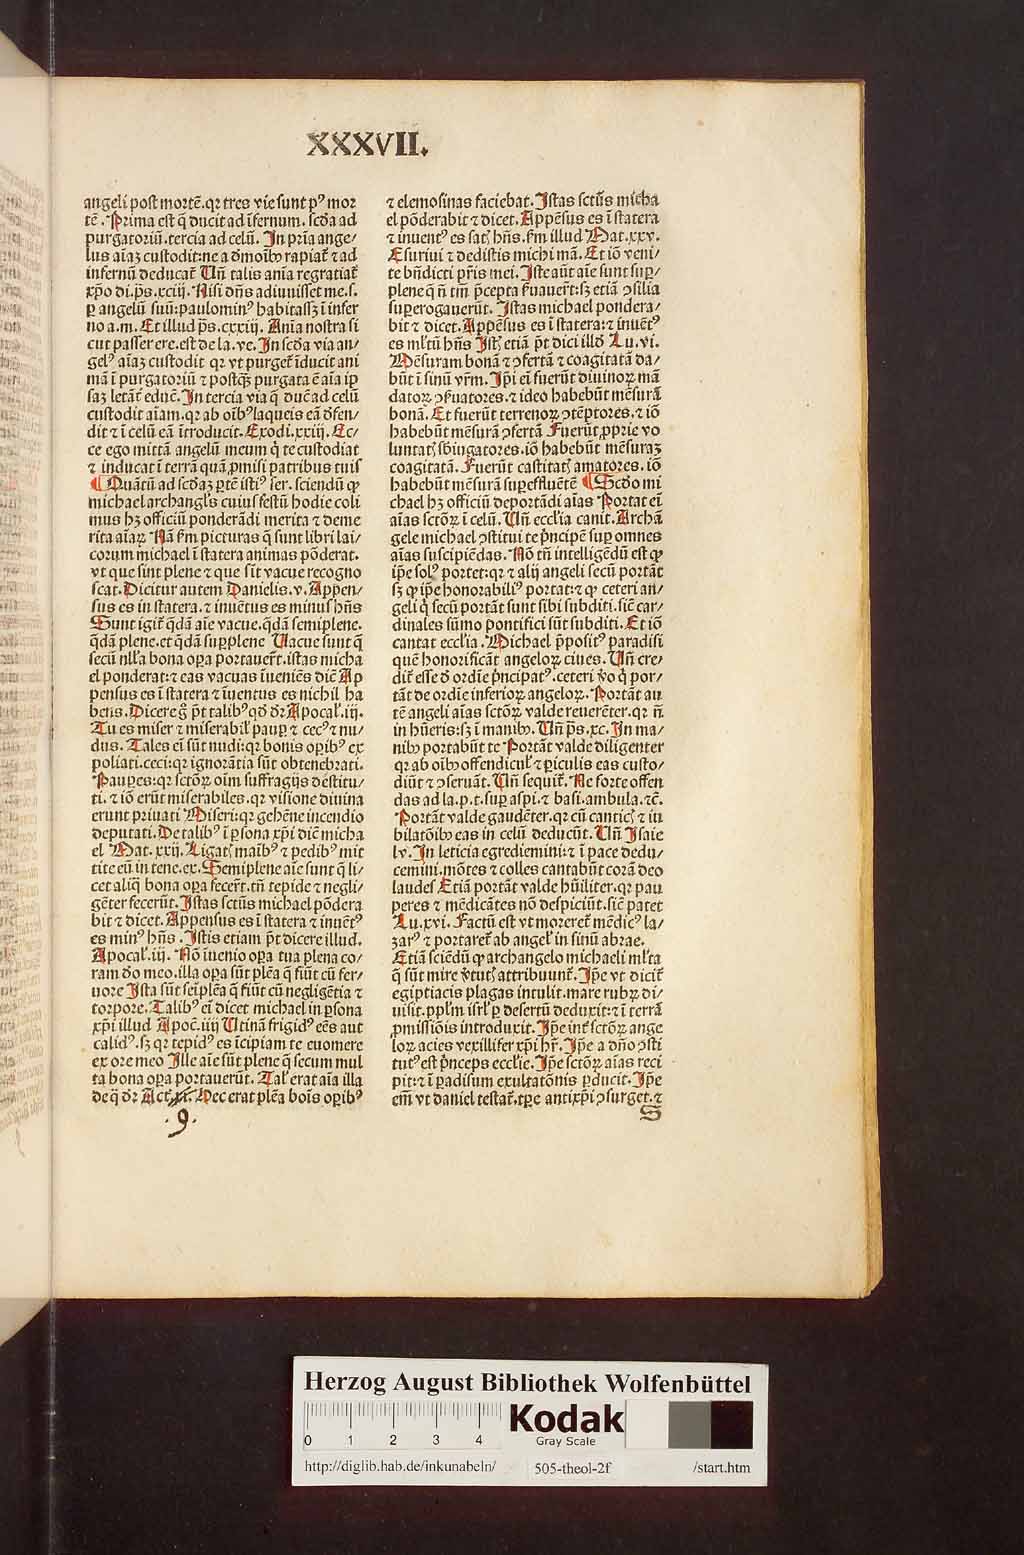 XXXVII.
angeli post mortē. qr tres vie sunt pꝰ mor
tē. Prima est q̄ ducit ad īfernum. scd̄a ad
purgatoriū. tercia ad celū. In pria ange⸗
lus aīaꝫ custodit: ne a d̄monibꝰ rapiat᷑ ⁊ ad
infernū deducat᷑ Uñ talis anīa regratiat᷑
xp̄o di. ps̄. xciij. Nisi dn̄s adiuuisset me. s.
ꝑ angelū suū: paulominꝰ habitassꝫ ī infer
no a. m. Et illud ps̄. cxxiij. Anīa nostra si
cut passer ere. est de la. ve. In scd̄a via an⸗
gelꝰ aīaꝫ custodit qr vt purget᷑ īducit ani
mā ī purgatoriū ⁊ postqꝫ purgata ē aīa ip
saꝫ letāt᷑ educ̄. In tercia via q̄ duc̄ ad celū
custodit aīam. qr ab oībꝰ laqueis eā d̄fen⸗
dit ⁊ ī celū eā ītroducit. Exodi. xxiij. Ec⸗
ce ego mittā angelū meum q̇ te custodiat
⁊ inducat ī terrā quā ꝓmisi patribus tuis
¶ Quātū ad scd̄aꝫ ꝑtē istiꝰ ser. sciendū ꝙ
michael archangl̄s cuius festū hodie coli
mus hꝫ officiū ponderādi merita ⁊ deme
rita aīaꝝ Nā ẜm picturas q̄ sunt libri lai⸗
corum michael ī statera animas pōderat.
vt que sint plene ⁊ que sīt vacue recogno
scat. Dicitur autem Danielis. v. Appen⸗
sus es in statera. ⁊ inuētus es minus hn̄s
Sunt igit᷑ q̄dā aīe vacue. q̄dā semiplene.
q̄dā plene. et q̄dā suꝑplene Uacue sunt q̄
secū nll̄a bona oꝑa portauert̄. istas micha
el ponderat: ⁊ eas vacuas īueniēs dic̄ Ap
pensus es ī statera ⁊ īuentus es nichil ha
bens. Dicere g̊ pt̄ talibꝰ qd̄ dr̄ Apocal᷑. iij.
Tu es miser ⁊ miserabil᷑ pauꝑ ⁊ cecꝰ ⁊ nu⸗
dus. Tales eī sūt nudi: qr bonis oꝑibꝰ ex
poliati. ceci: qr ignorātia sūt obtenebrati.
Pauꝑes: qr sctōꝝ oīm suffragijs destitu⸗
ti. ⁊ iō erūt miserabiles. qr visione diuina
erunt priuati Miseri: qr gehēne incendio
deputati. De talibꝰ ī ꝑsona xp̄i dic̄ micha
el Mat. xxij. Ligat᷑ maībꝰ ⁊ pedibꝰ mit
tite eū in tene. ex. Semiplene aīe sunt q̄ li⸗
cet aliq̄ bona oꝑa fecert̄. tn̄ tepide ⁊ negli⸗
gēter fecerūt. Istas sctūs michael pōdera
bit ⁊ dicet. Appensus es ī statera ⁊ inuētꝰ
es minꝰ hn̄s. Istis etiam pt̄ dicere illud.
Apocal᷑. iij. Nō īuenio oꝑa tua plena co⸗
ram d̄o meo. illa oꝑa sūt plēa q̄ fiūt cū fer⸗
uore Ista sūt sēiplēa q̄ fiūt cū negligētia ⁊
torpore. Talibꝰ eī dicet michael in ꝑsona
xp̄i illud Apoc̄. iiij Utinā frigidꝰ eēs aut
calidꝰ. sꝫ qr tepidꝰ es īcipiam te euomere
ex ore meo Ille aīe sūt plene q̄ secum mul
ta bona oꝑa portauerūt. Tal᷑ erat aīa illa
de q̄ dr̄ Act. Hec erat plēa boīs oꝑibꝰ
.9.
⁊ elemosinas faciebat. Istas sctūs micha
el pōderabit ⁊ dicet. Appēsus es ī statera
⁊ inuentꝰ es sat᷑ hn̄s. ẜm illud Mat. xxv.
Esuriui ⁊ dedistis michi mā. Et iō veni⸗
te bn̄dicti pr̄is mei. Iste aūt aīe sunt suꝑ⸗
plene q̄ n̄ tm̄ p̄cepta ẜuauert̄: sꝫ etiā ↄsilia
suꝑerogauerūt. Istas michael pondera⸗
bit ⁊ dicet. Appēsus es ī statera: ⁊ inuētꝰ
es ml̄tū hn̄s Ist᷑ etiā pt̄ dici illd̄ Lu. vi.
Mēsuram bonā ⁊ ↄfertā ⁊ coagitatā da⸗
būt ī sinū vr̄m. Ip̄i eī fuerūt diuinoꝝ mā
datoꝝ ↄẜuatores. ⁊ ideo habebūt mēsurā
bonā. Et fuerūt terrenoꝝ ↄtēptores. ⁊ iō
habebūt mēsurā ↄfertā Fuerūt ꝓprie vo
luntat᷑ s̄bīugatores. iō habebūt mēsuraꝫ
coagitatā. Fuerūt castitat᷑ amatores. iō
habebūt mēsurā suꝑeffluētē ¶ Scd̄o mi
chael hꝫ officiū deportādi aīas Portat eī
aīas sctōꝝ ī celū. Uñ eccl̄ia canit. Archā
gele michael ↄstitui te p̄ncipē suꝑ omnes
aīas suscipiēdas. Nō tn̄ intelligēdū est ꝙ
ip̄e solꝰ portet: qr ⁊ alij angeli secū portāt
sꝫ ꝙ ip̄e honorabiliꝰ portat: ⁊ ꝙ ceteri an⸗
geli q̇ secū portāt sunt sibi subditi. sic̄ car⸗
dinales sūmo pontifici sūt subditi. Et iō
cantat eccl̄ia. Michael p̄positꝰ paradisi
quē honorificāt angeloꝝ ciues. Uñ cre⸗
dit᷑ esse d̄ ordīe p̄ncipatꝰ. ceteri v̊o q̇ por⸗
tāt de ordīe inferioꝝ angeloꝝ. Portāt au
tē angeli aīas sctōꝝ valde reuerēter. qr n̄
in hūeris: sꝫ ī manibꝰ. Uñ ps̄. xc. In ma⸗
nibꝰ portabūt te Portāt valde diligenter
qr ab oībꝰ offendicul᷑ ⁊ ꝑiculis eas custo⸗
diūt ⁊ ↄseruāt. Uñ sequit᷑. Ne forte offen
das ad la. p. t. suꝑ aspi. ⁊ basi. ambula. ⁊c̄.
Portāt valde gaudēter. qr cū cantic᷑ ⁊ iu
bilatōibꝰ eas in celū deducūt. Uñ Isaie
lv. In leticia egrediemini: ⁊ ī pace dedu⸗
cemini. mōtes ⁊ colles cantabūt corā deo
laudes Etiā portāt valde hūiliter. qr pau
peres ⁊ mēdicātes nō despiciūt. sic̄ patet
Lu. xvi. Factū est vt moreret᷑ mēdicꝰ la⸗
zarꝰ ⁊ portaret᷑ ab angel᷑ in sinū abrae.
Etiā sciēdū ꝙ archangelo michaeli ml̄ta
q̄ sūt mire v̊tut᷑ attribuunt᷑. Ip̄e vt dicit᷑
egiptiacis plagas intulit. mare rubꝝ di⸗
uisit. ppl̄m isrl̄ ꝑ desertū deduxit: ⁊ ī terrā
ꝓmissiōis introduxit. Ip̄e int᷑ sctōꝝ ange
loꝝ acies vexillifer xp̄i hr̄. Ip̄e a dn̄o ↄsti
tutꝰ est p̄nceps eccl̄ie. Ip̄e sctōꝝ aīas reci
pit: ⁊ ī ꝑadisum exultatōnis ꝑducit. Ip̄e
em̄ vt daniel testat᷑. tꝑe antixp̄i ↄsurget. ⁊
S
Herzog August Bibliothek Wolfenbüttel
0 1 2 3 4
Kodak
Gray Scale
http://diglib.hab.de/inkunabeln/ 505-theol-2f /start.htm